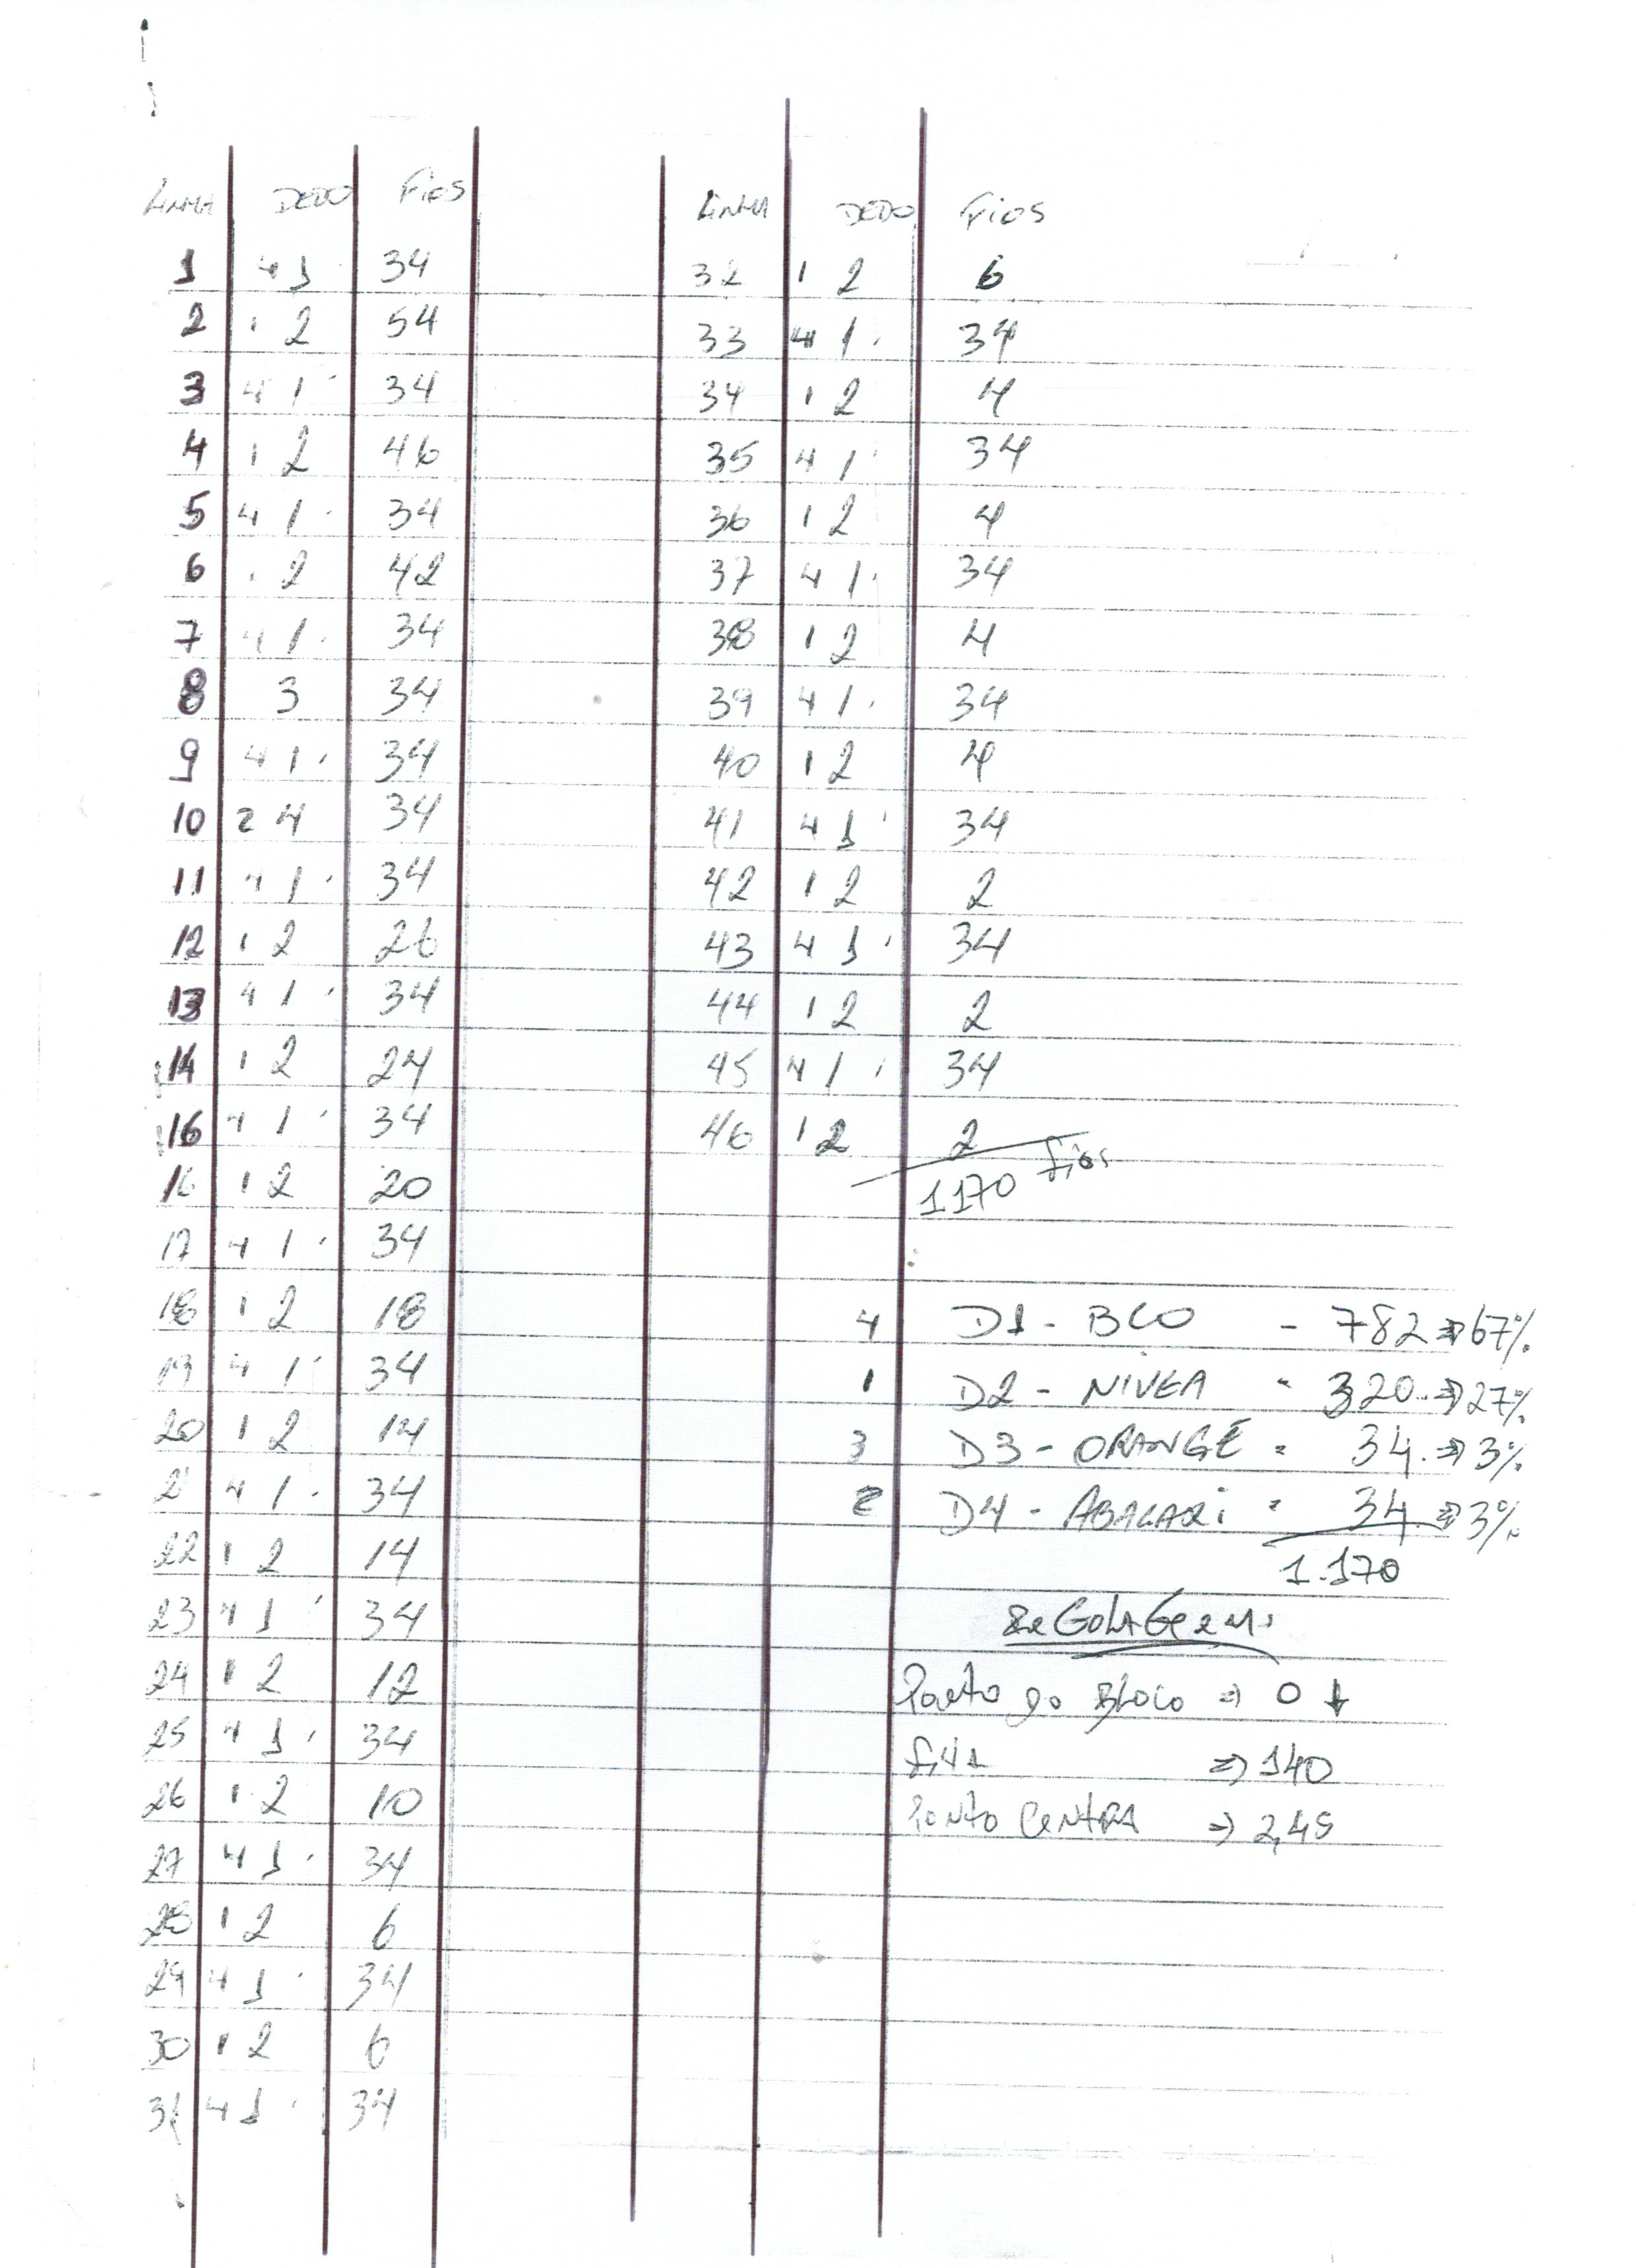 LINHA DEDO FIOS
1 4 1 34
2 1 2 54
3 4 1 34
4 1 2 46
5 4 1 34
6 1 2 42
7 4 1 34
8 3 34
9 4 1 34
10 2 4 34
11 4 1 34
12 1 2 26
13 4 1 34
14 1 2 24
16 4 1 34
16 1 2 20
17 4 1 34
18 1 2 18
19 4 1 34
20 1 2 14
21 4 1 34
22 1 2 14
23 4 1 34
24 1 2 12
25 4 1 34
26 1 2 10
27 4 1 34
28 1 2 6
29 4 1 34
30 1 2 6
31 4 1 34
LINHA DEDO FIOS
32 1 2 6
33 4 1 34
34 1 2 4
35 4 1 34
36 1 2 4
37 4 1 34
38 1 2 4
39 4 1 34
40 1 2 4
41 4 1 34
42 1 2 2
43 4 1 34
44 1 2 2
45 4 1 34
46 1 2 2
1170 fios
4 D1 - BCO - 782 ⇒ 67%
1 D2 - NIVEA - 320 ⇒ 27%
3 D3 - ORANGE = 34 ⇒ 3%
2 D4 - ABACAXi = 34 ⇒ 3%
1.170
do Bloco ⇒ 0 ↓
⇒ 140
Ponto Centra ⇒ 2,45